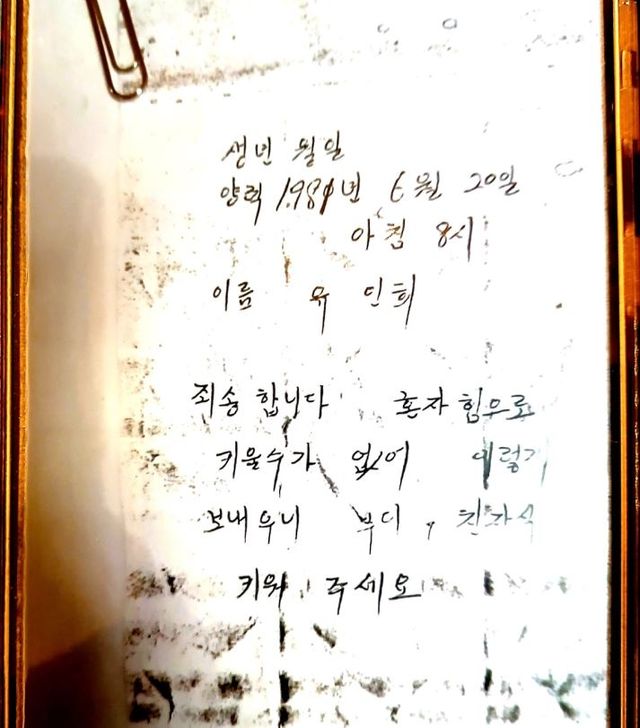 생년 월일
양력 6월 20일
아침 8시
이름 유 인희
죄송 합니다 혼자 힘으로
키울수가 없어 이렇게
보내우니 부디, 친자식
키워 주세요